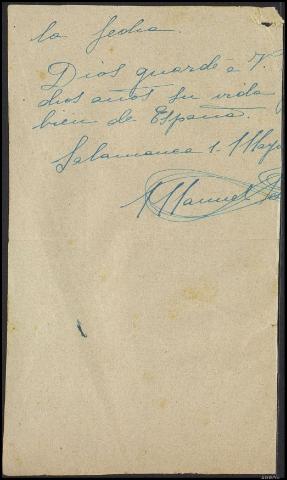 la fecha.
Dios guarde a V.
chos años su vida
bien de España.
Salamanca 1. Mayo
Manuel